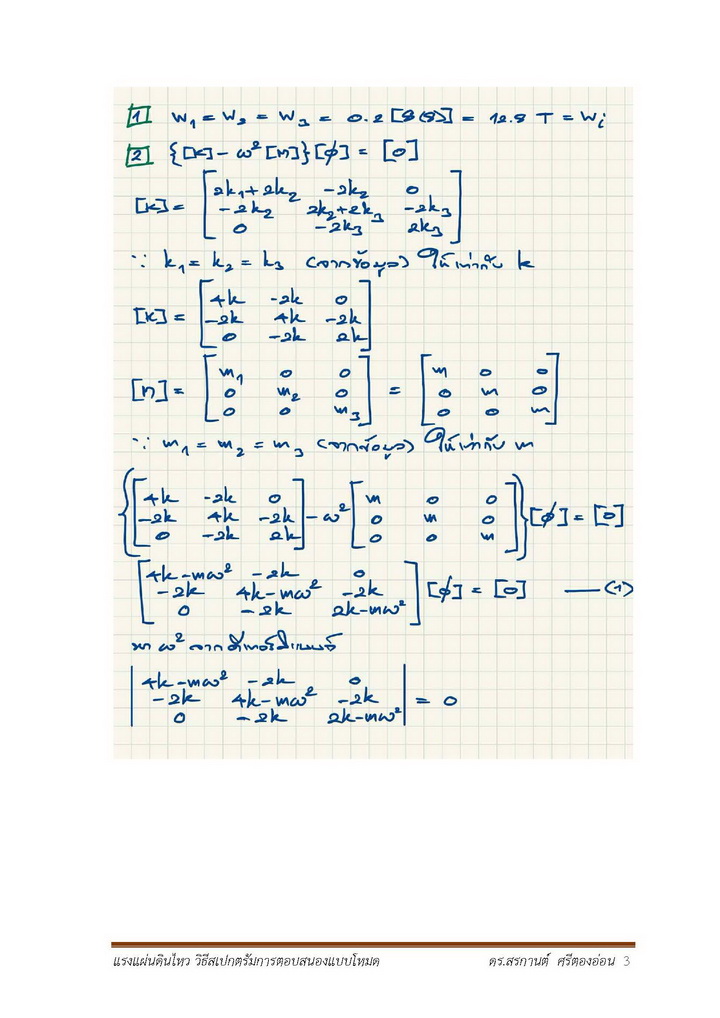 1 W₁ = W₂ = W₃ = 0.2 [8(8)] = 12.8 T = Wᵢ
2 {[K] - ω²[M]}[φ] = [0]
[K] = [2k₁+2k₂ -2k₂ 0
-2k₂ 2k₂+2k₃ -2k₃
0 -2k₃ 2k₃]
∵ k₁ = k₂ = k₃ (จากข้อมูล) ให้เท่ากับ k
[K] = [4k -2k 0
-2k 4k -2k
0 -2k 2k]
[M] = [m₁ 0 0
0 m₂ 0
0 0 m₃] = [m 0 0
0 m 0
0 0 m]
∵ m₁ = m₂ = m₃ (จากข้อมูล) ให้เท่ากับ m
{[4k -2k 0
-2k 4k -2k
0 -2k 2k] - ω² [m 0 0
0 m 0
0 0 m]}[φ] = [0]
[4k-mω² -2k 0
-2k 4k-mω² -2k
0 -2k 2k-mω²][φ] = [0] —(1)
หา ω² จากดีเทอร์มิแนนต์
|4k-mω² -2k 0
-2k 4k-mω² -2k
0 -2k 2k-mω²| = 0
แรงแผ่นดินไหว วิธีสเปกตรัมการตอบสนองแบบโหมด ดร.สรกานต์ ศรีตองอ่อน 3